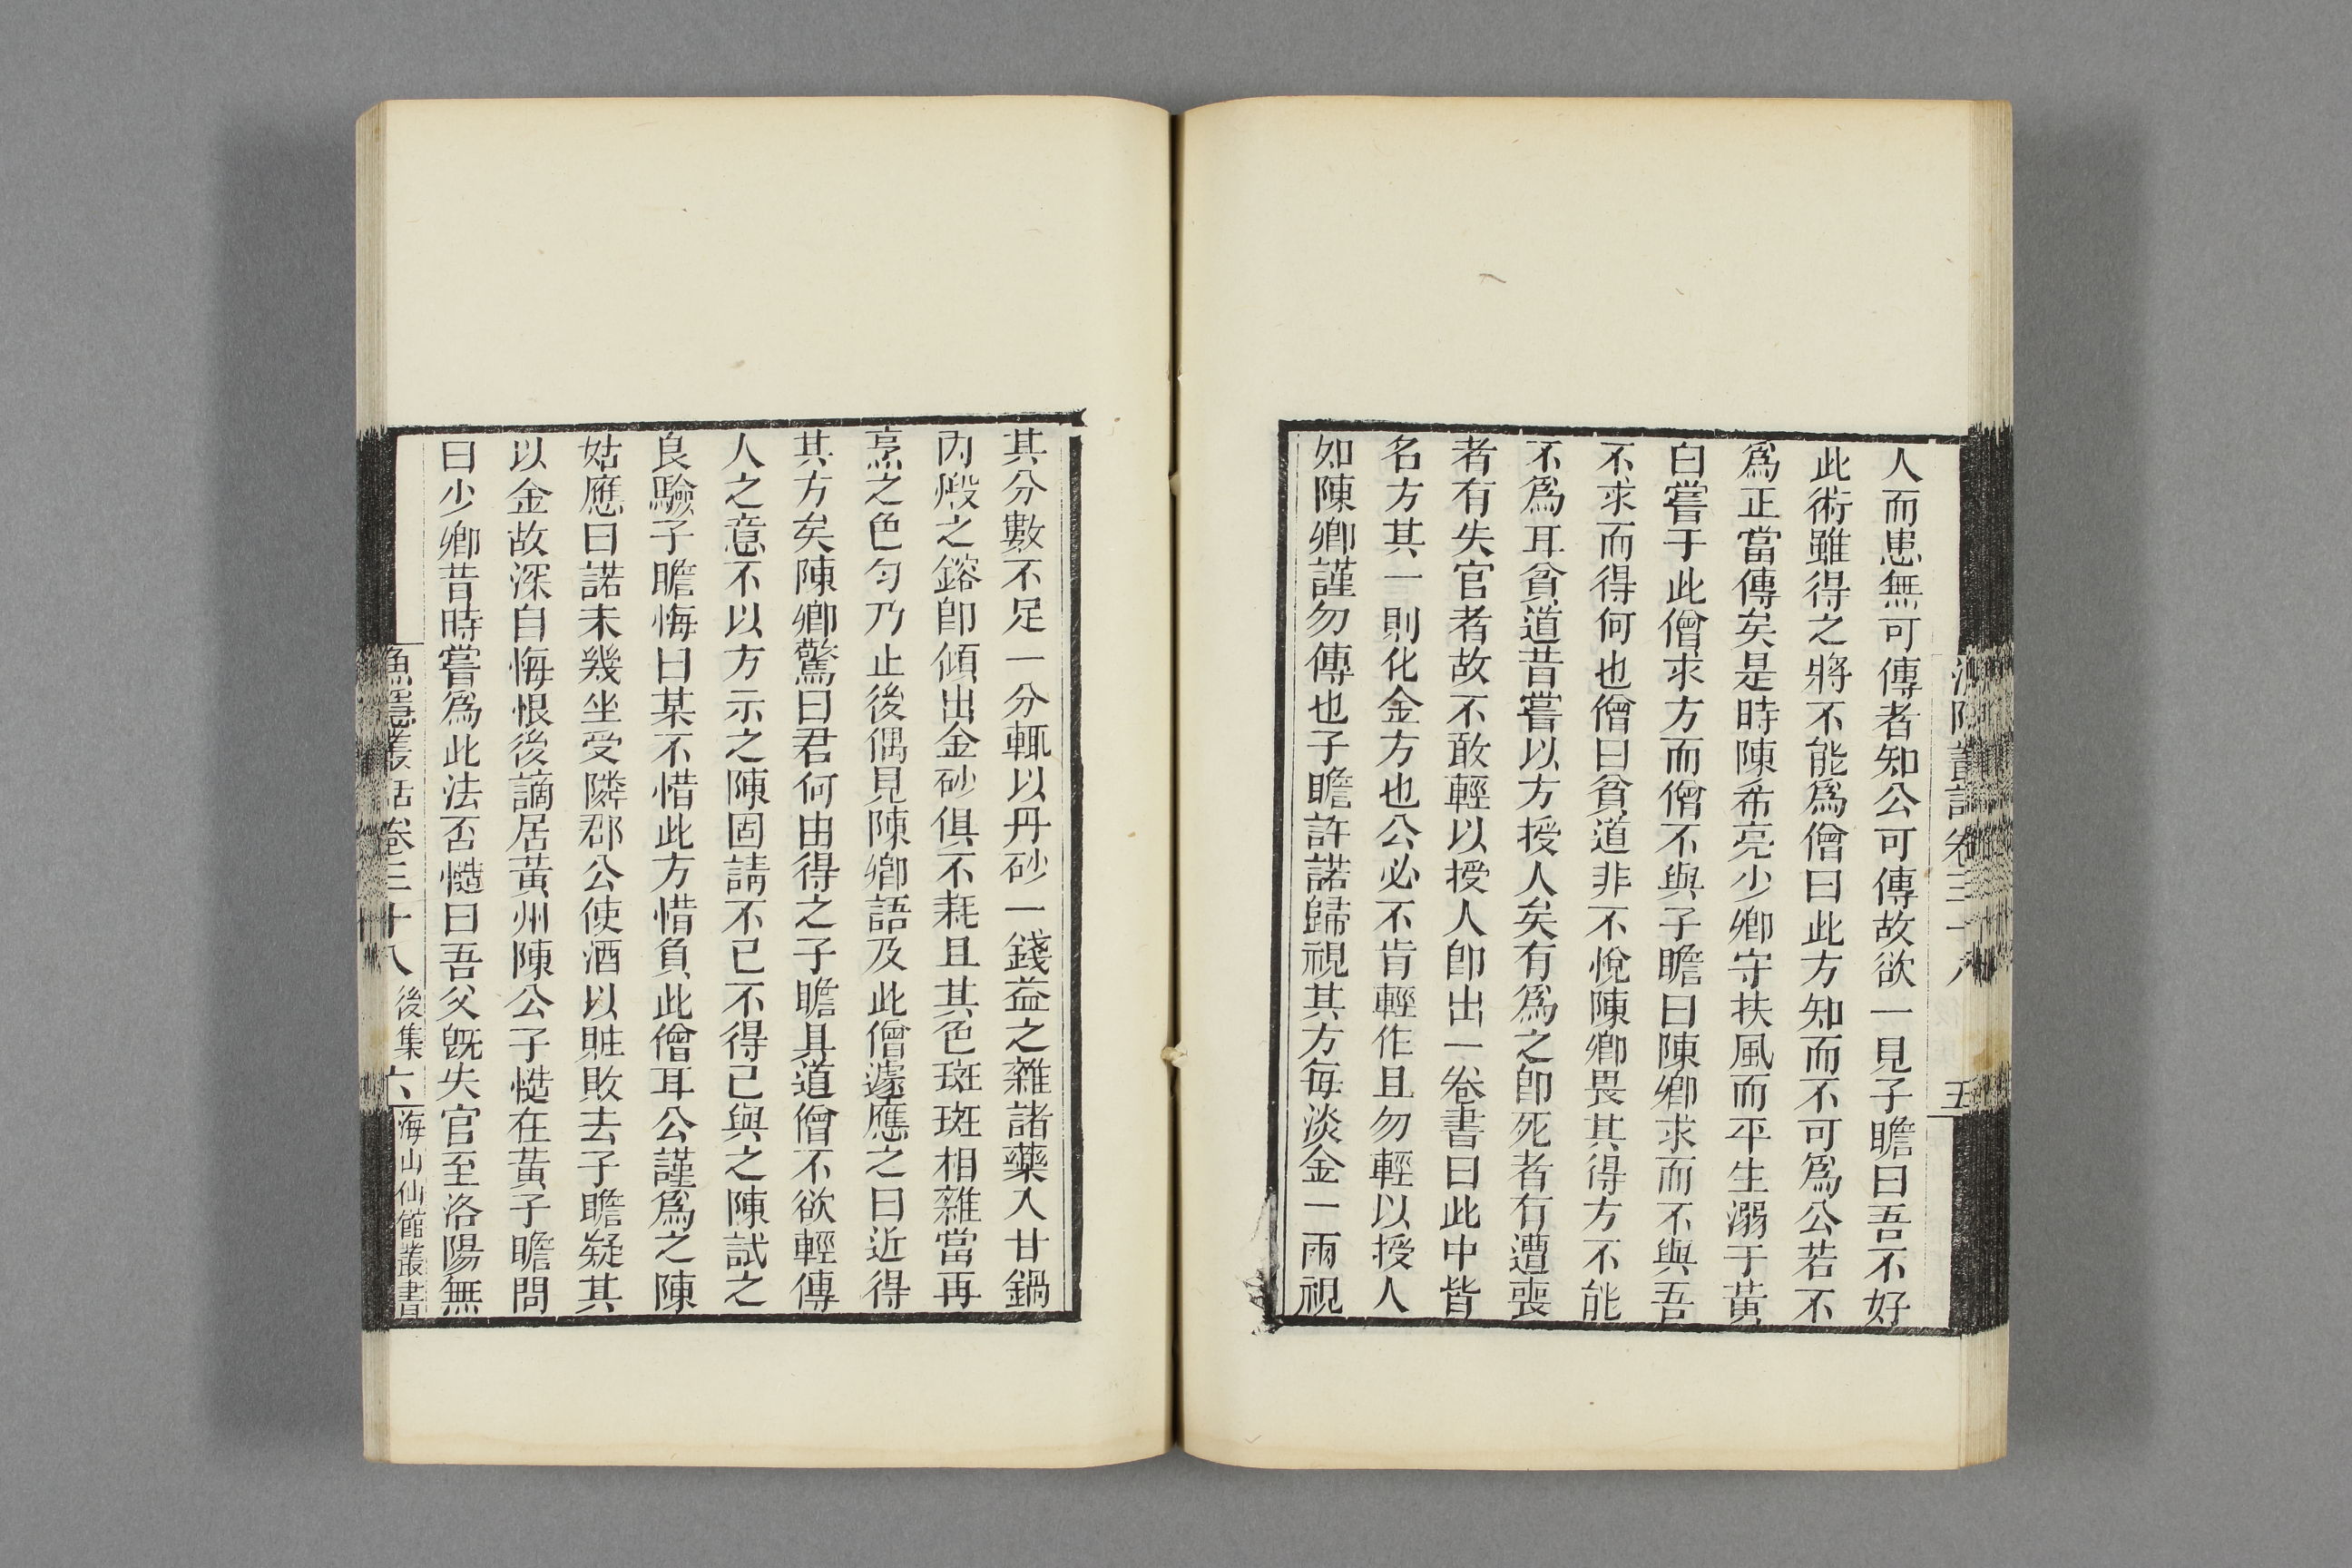 人而患無可傳者知公可傳故欲一見子瞻曰吾不好
此術雖得之將不能爲僧曰此方知而不可爲公若不
爲正當傳矣是時陳希亮少卿守扶風而平生溺于黃
白嘗于此僧求方而僧不與子瞻曰陳卿求而不與吾
不求而得何也僧曰貧道非不悅陳卿畏其得方不能
不爲耳貧道昔嘗以方授人矣有爲之卽死者有遭喪
者有失官者故不敢輕以授人卽出一卷書曰此中皆
名方其一則化金方也公必不肯輕作且勿輕以授人
如陳卿謹勿傳也子瞻許諾歸視其方每淡金一兩視
其分數不足一分輒以丹砂一錢益之雜諸藥入甘鍋
內煅之鎔卽傾出金砂俱不耗且其色斑斑相雜當再
烹之色勻乃止後偶見陳卿語及此僧遽應之曰近得
其方矣陳卿驚曰君何由得之子瞻具道僧不欲輕傳
人之意不以方示之陳固請不已不得已與之陳試之
良驗子瞻悔曰某不惜此方惜負此僧耳公謹爲之陳
姑應曰諾未幾坐受隣郡公使酒以賍敗去子瞻疑其
以金故深自悔恨後謫居黃州陳公子慥在黃子瞻問
曰少卿昔時嘗爲此法否慥曰吾父旣失官至洛陽無
漁隱叢話卷三十八 後集 六 海山仙館叢書